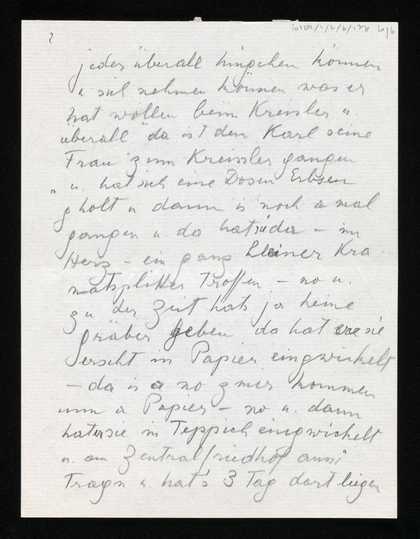 2
jedes überall hingehen können
u sich nehmen können was er
hat wollen beim Kreissler u
überall da ist dem Karl seine
Frau zum Kreissler gangen
u. hat sich eine Dosen Erbsen
gholt u dann is noch a mal
gangen u da hat sie da – im
Herz – ein ganz kleiner Kra
natsplitter Troffen – no u.
zu der Zeit hats ja keine
gräber geben da hat er sie
erscht in Papier eingwickelt
– da is a no z mir kommen
umm a Papier – no u. dann
hat er sie in Teppich eingwickelt
u. am Zentralfriedhof aussi
Tragn u. hat's 3 Tag dort liegen